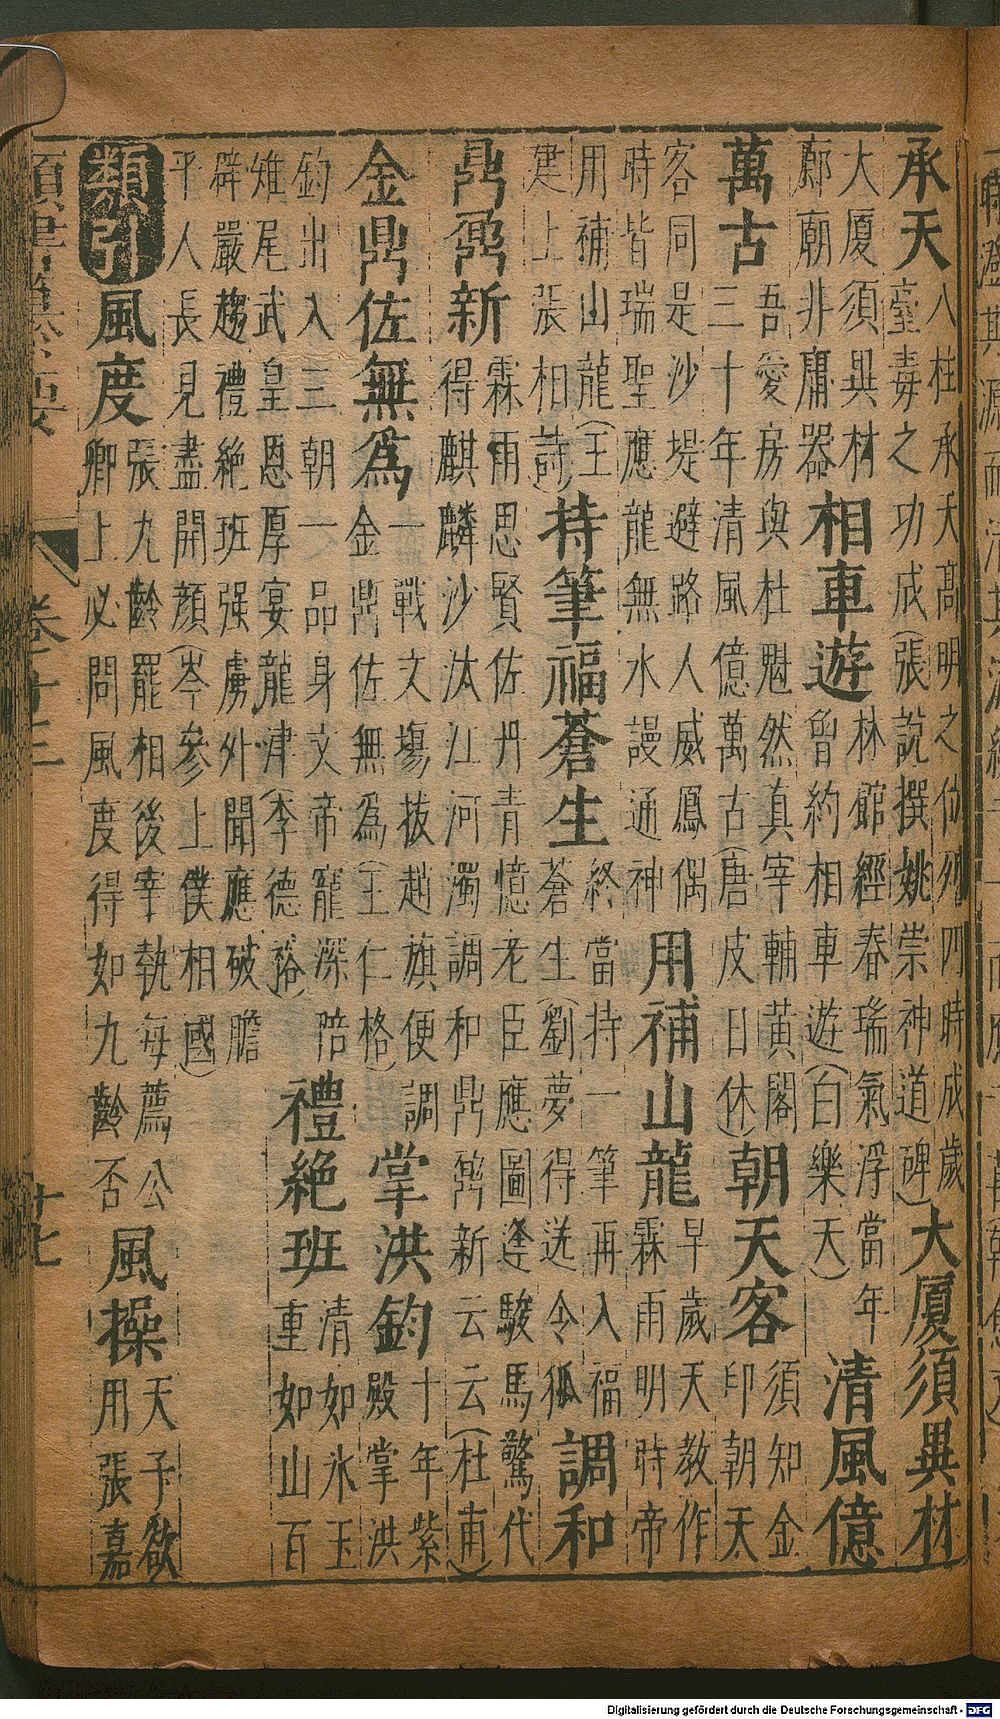 承天 八柱承天高明之位列四時成歲 臺毒之功成(張說撰姚崇神道碑) 大厦須異材
大厦須異材 廊朝非庸器 相車遊 林館經春瑞氣浮當年 曾約相車遊(白樂天) 清風億
萬古 吾愛房與杜魁然真宰輔黃閣 三十年清風億萬古(唐皮日休) 朝天客 須知金 印朝天
客同是沙堤避路人威鳳偶 時皆瑞聖應龍無水謾通神 用補山龍 早歲天教作 霖雨明時帝
用補山龍(王 建上張相詩) 持筆福蒼生 終當持一筆再入福 蒼生(劉夢得送令狐 調和
鼎鼐新 霖雨思賢佐丹青憶老臣應圖逢駿馬驚代 得麒麟沙汰江河濁調和鼎鼐新云云(杜甫)
金鼎佐無爲 一戰文場拔趙旗便調 金鼎佐無爲(王仁格) 掌洪鈞 十年紫 殿掌洪
鈞出入三朝一品身文帝寵深陪 雉尾武皇恩厚宴龍津(李德裕) 禮絕班 清如冰玉 重如山百
辟嚴趨禮絕班强虜外聞應破膽 平人長見盡開顏(岑參上僕相國)
類引 風度 張九齡罷相後宰執每薦公 卿上必問風度得如九齡否 風操 天子欲 用張嘉
卷十三 十七
Digitalisierung gefördert durch die Deutsche Forschungsgemeinschaft - DFG